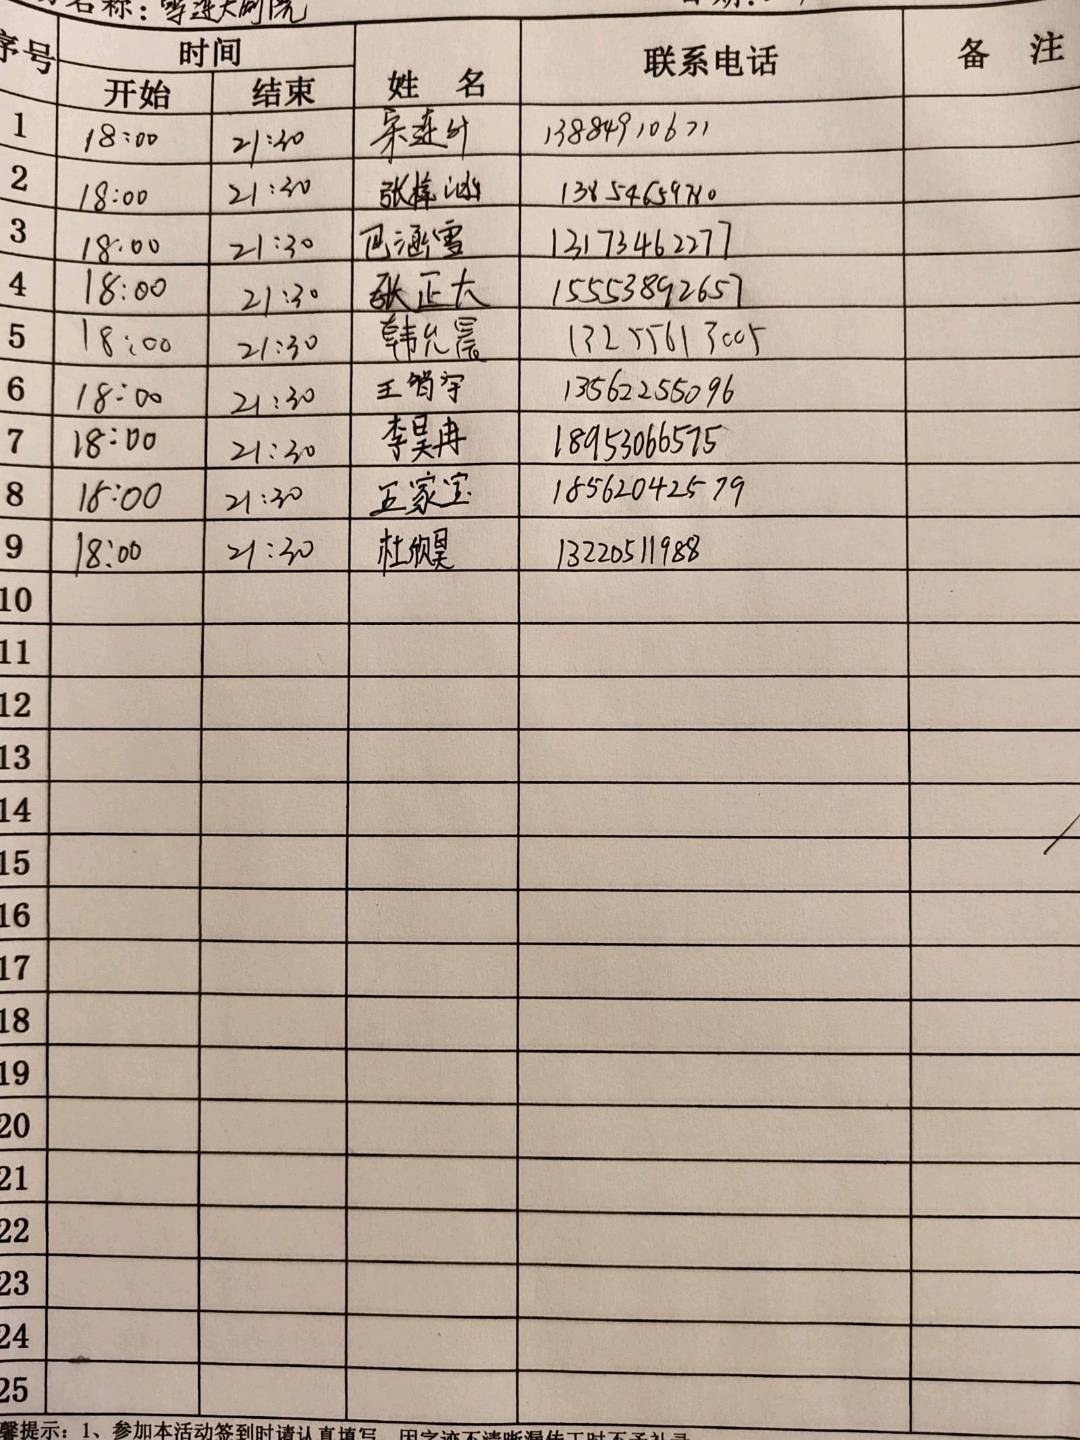 名称：
序号 时间 姓 名 联系电话 备 注
开始 结束
1 18:00 21:30 13884910671
2 18:00 21:30 张梓 13854659780
3 18:00 21:30 涵雪 13173462277
4 18:00 21:30 张正大 15553892657
5 18:00 21:30 韩允晨 13255613005
6 18:00 21:30 王智宇 13562255096
7 18:00 21:30 李昊冉 18953066575
8 18:00 21:30 王家宝 18562042579
9 18:00 21:30 杜欣昊 13220511988
10
11
12
13
14
15
16
17
18
19
20
21
22
23
24
25
馨提示：1、参加本活动签到时请认真填写，因字迹不清晰漏传工时不予补录